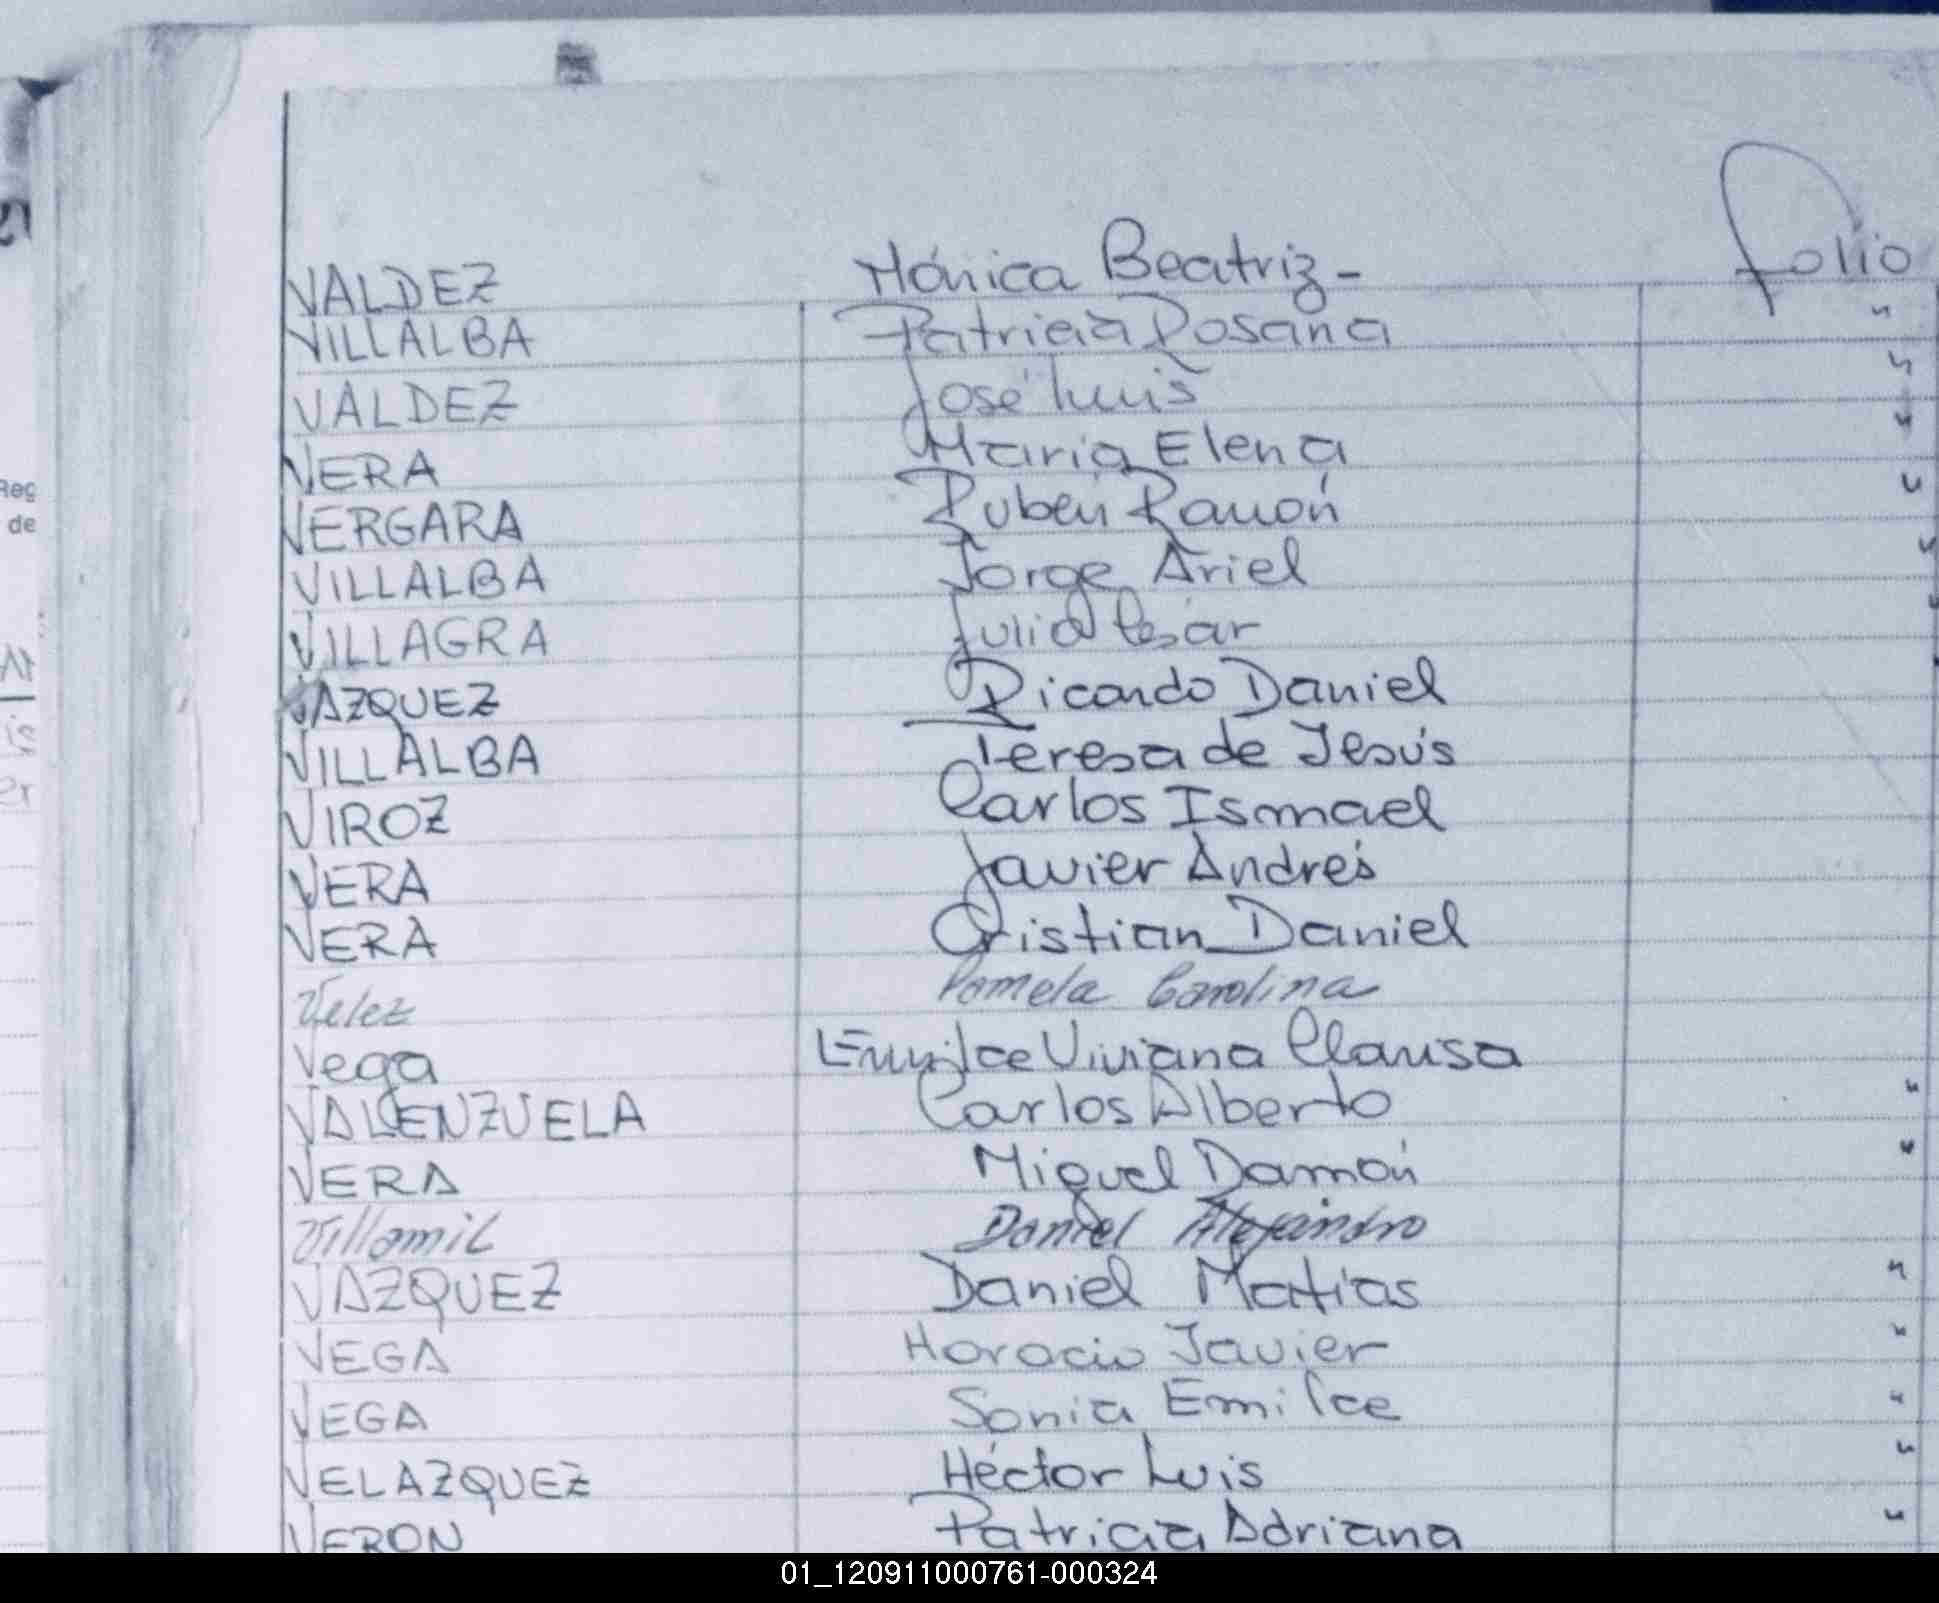 VALDEZ Mónica Beatriz - folio
VILLALBA Patricia Rosana "
VALDEZ José Luis "
VERA María Elena "
VERGARA Rubén Ramón "
VILLALBA Jorge Ariel "
VILLAGRA Julio César "
VAZQUEZ Ricardo Daniel
VILLALBA Teresa de Jesús
VIROZ Carlos Ismael
VERA Javier Andrés
VERA Cristian Daniel
Velez Pamela Carolina
Vega Emilce Viviana Clarisa
VALENZUELA Carlos Alberto "
VERA Miguel Ramón "
Villamil Daniel Alejandro
VAZQUEZ Daniel Matias "
VEGA Horacio Javier "
VEGA Sonia Emilce "
VELAZQUEZ Héctor Luis "
VERON Patricia Adriana "
Reg
de
01_120911000761-000324